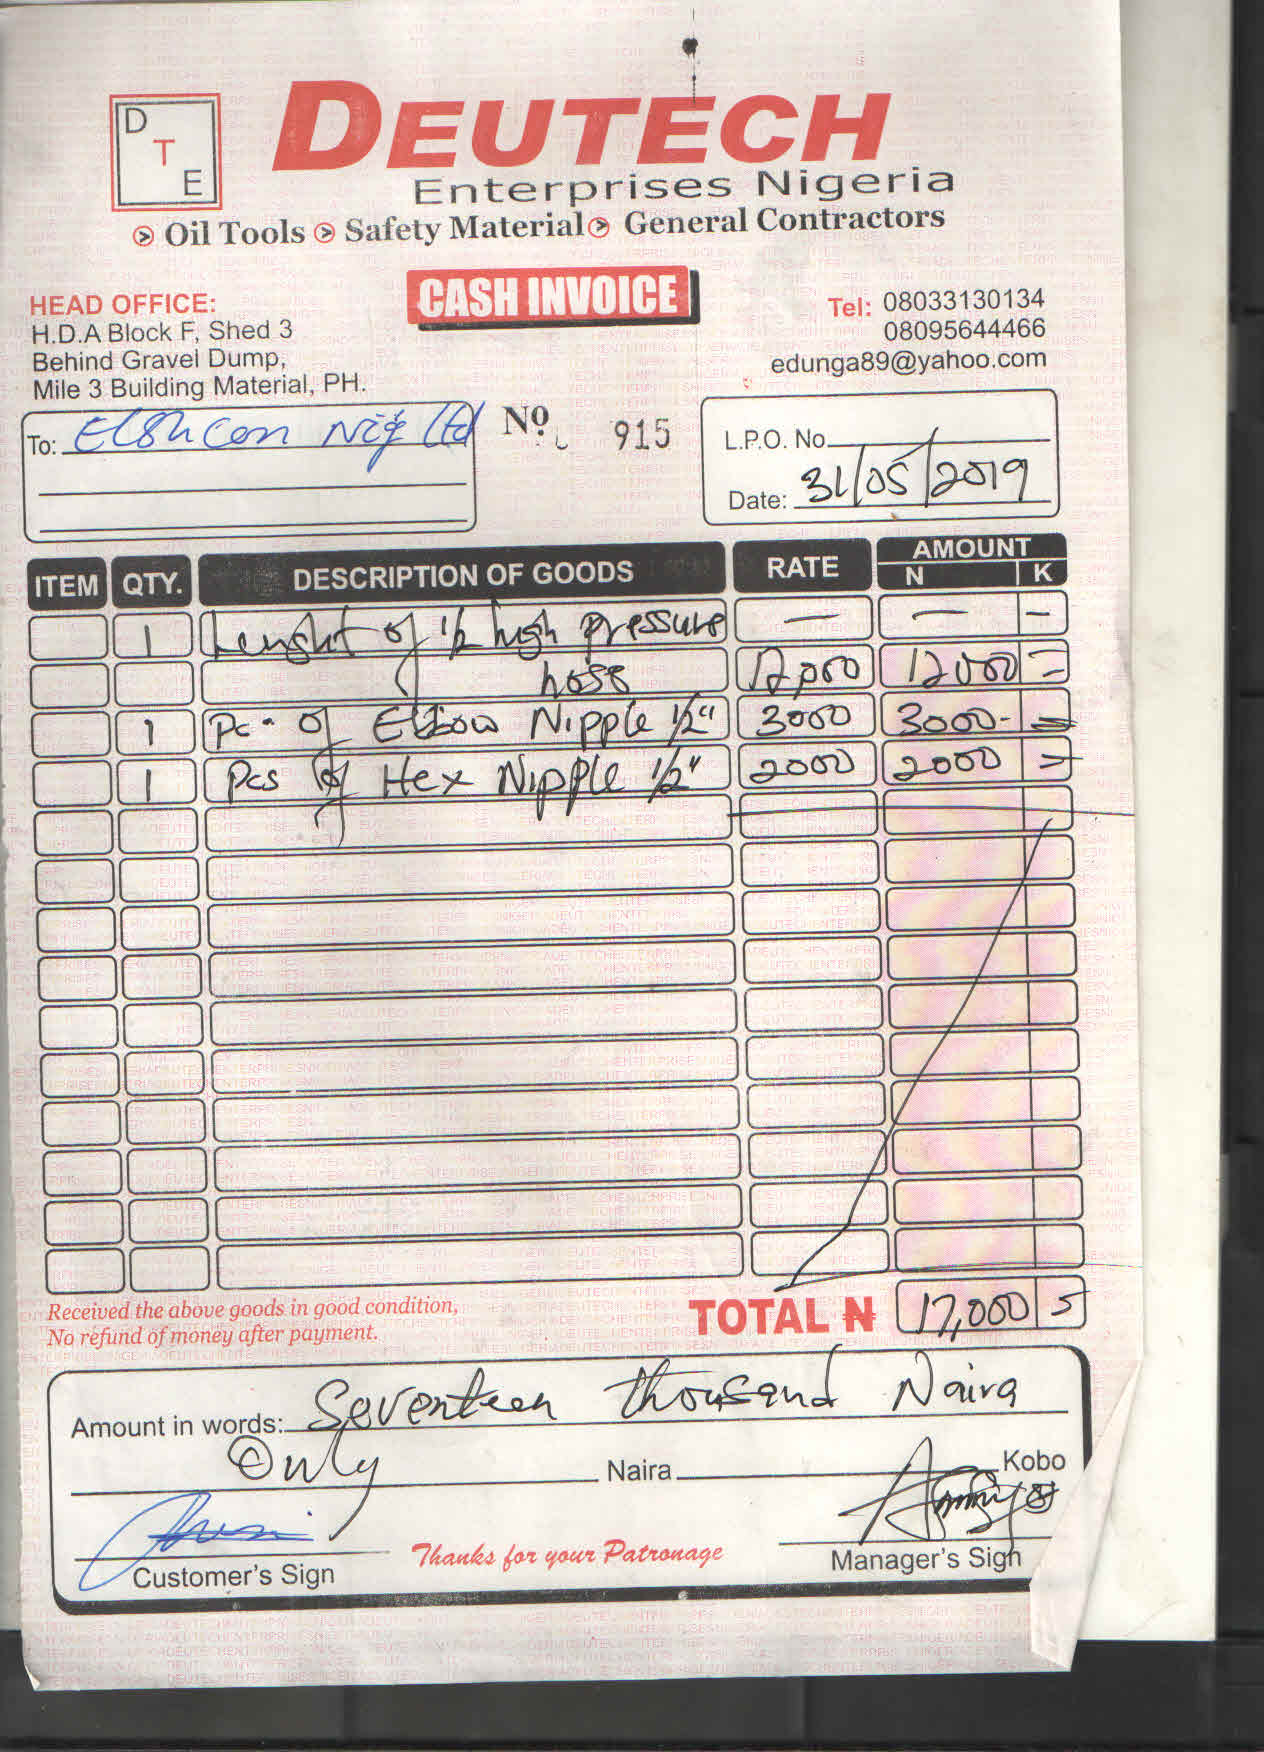 D
T
E
DEUTECH
Enterprises Nigeria
Oil Tools Safety Material General Contractors
CASH INVOICE
HEAD OFFICE:
H.D.A Block F, Shed 3
Behind Gravel Dump,
Mile 3 Building Material, PH.
Tel: 08033130134
08095644466
edunga89@yahoo.com
To: Elshcon Nig Ltd
No. 915
L.P.O. No
Date: 31/05/2019
ITEM QTY. DESCRIPTION OF GOODS RATE AMOUNT
N K
1 Lenght of 1/2 high pressure — — -
hose 12,000 12000 =
1 Pc. of Elbow Nipple 1/2" 3000 3000- =
1 Pcs of Hex Nipple 1/2" 2000 2000 =
Received the above goods in good condition,
No refund of money after payment.
TOTAL ₦ 17,000
Amount in words: Seventeen thousand Naira
Only Naira Kobo
Customer's Sign
Thanks for your Patronage
Manager's Sign